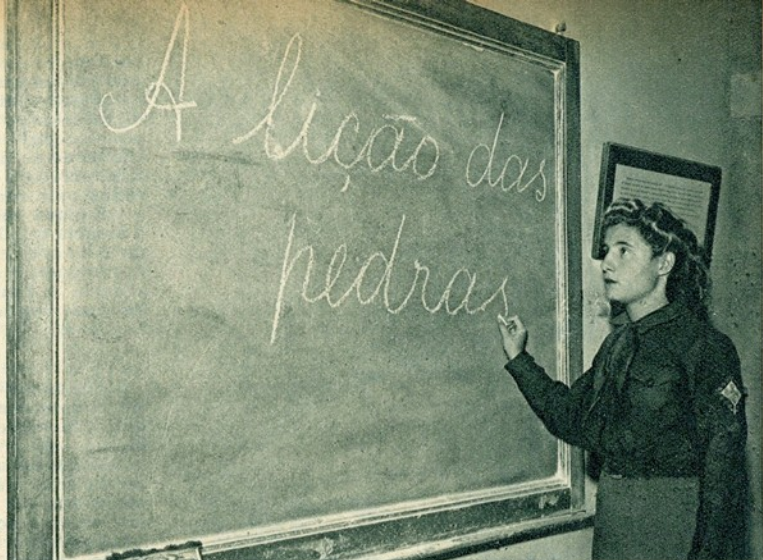 A lição das
pedras